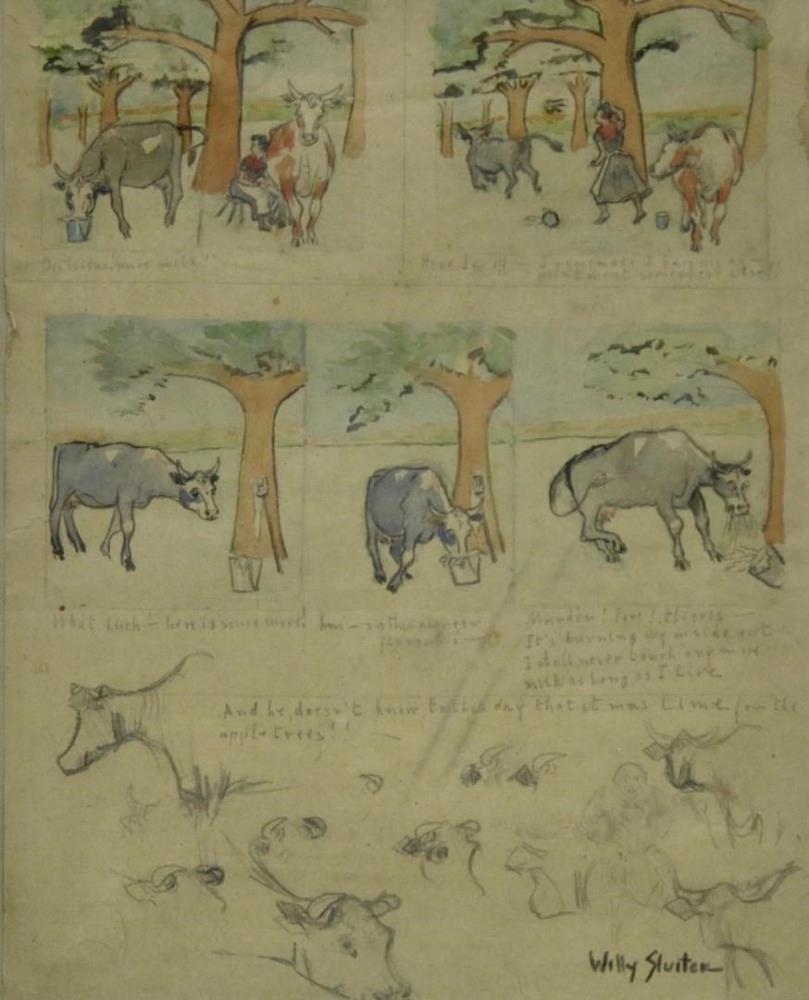 Delicious, more milk!
I remember I have an
appointment somewhere else!
What luck — here is some more!
Murder! Fire! Thieves —
It's burning my inside out
I shall never touch any more
milk as long as I live
And he doesn't know to this day that it was Lime for the
apple trees!!
Willy Sluiter